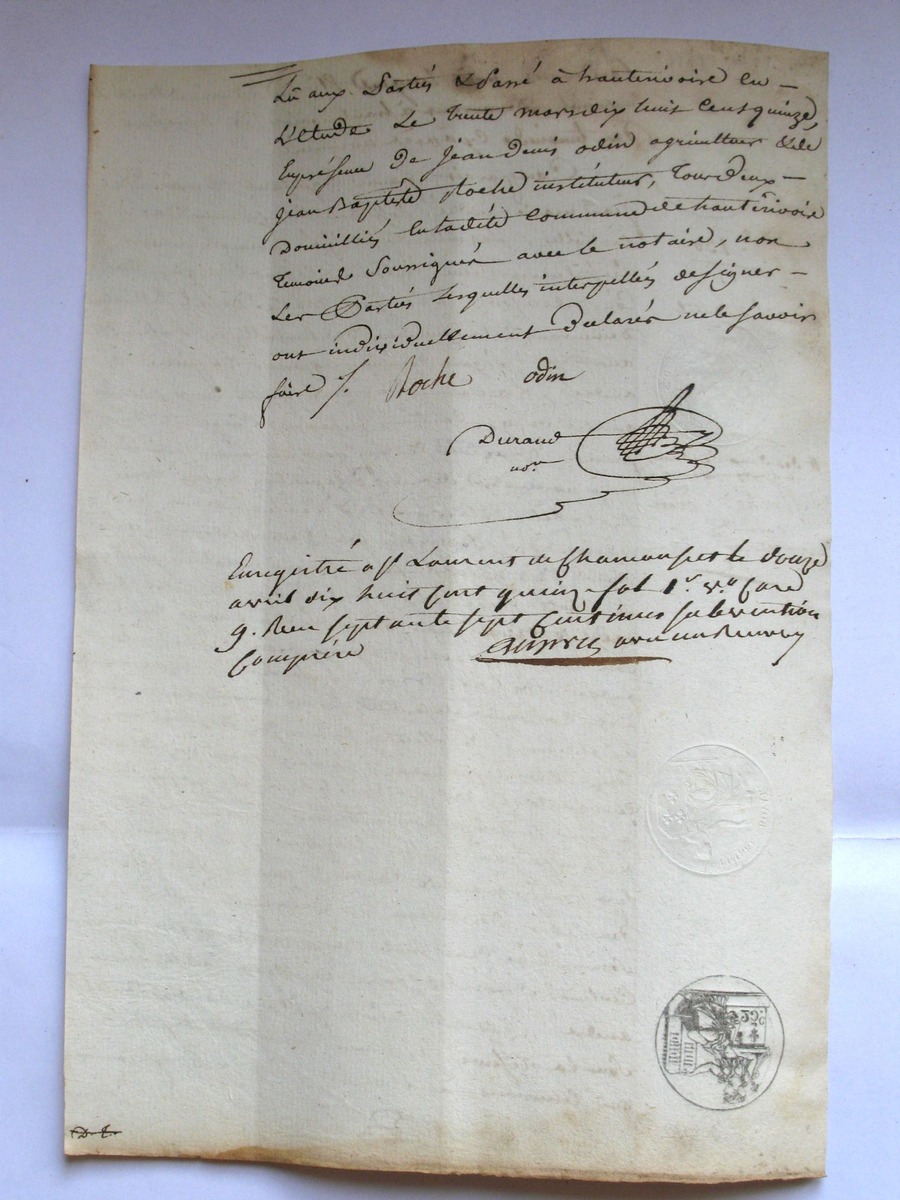 Lû aux Parties & Passé à hauterivoire en
L'étude Le Trente mars dix huit Cent quinze,
En présence De jean denis odin agriculteur & de
jean Baptiste Roche instituteur, Tous Deux
Domicilliés en ladite Commune de hauterivoire
Temoins Soussignés avec le notaire, non
Les Parties Lesquelles interpellées de signer
ont individuellement Declarés ne le Savoir
faire /. Roche odin
Durand
nore
Enregistré a St Laurent de Chamousset le douze
avril dix huit Cent quinze fol 1r. vo. Case
9. Reçu Septante Sept Centimes Subvention
Comprise
25c
D. L.